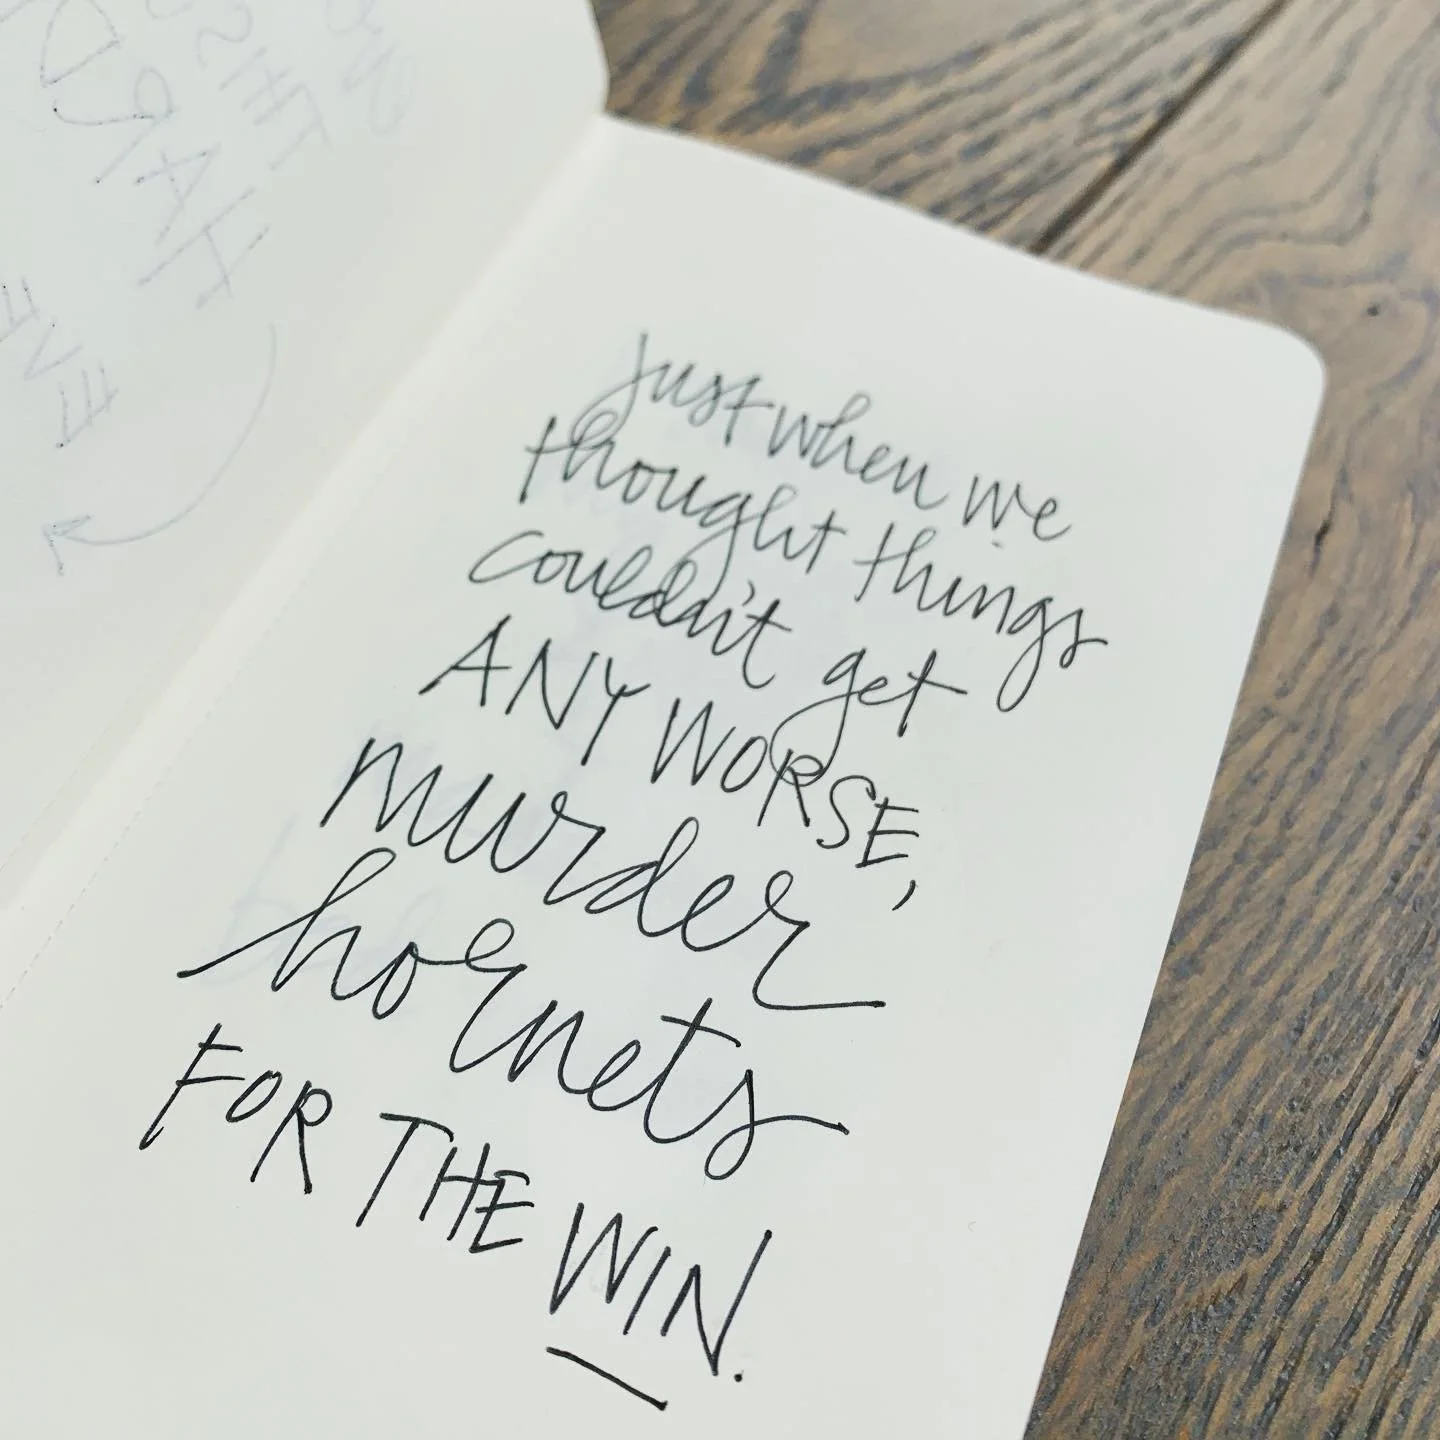 just when we
thought things
couldn't get
ANY WORSE,
murder
hornets
FOR THE WIN.